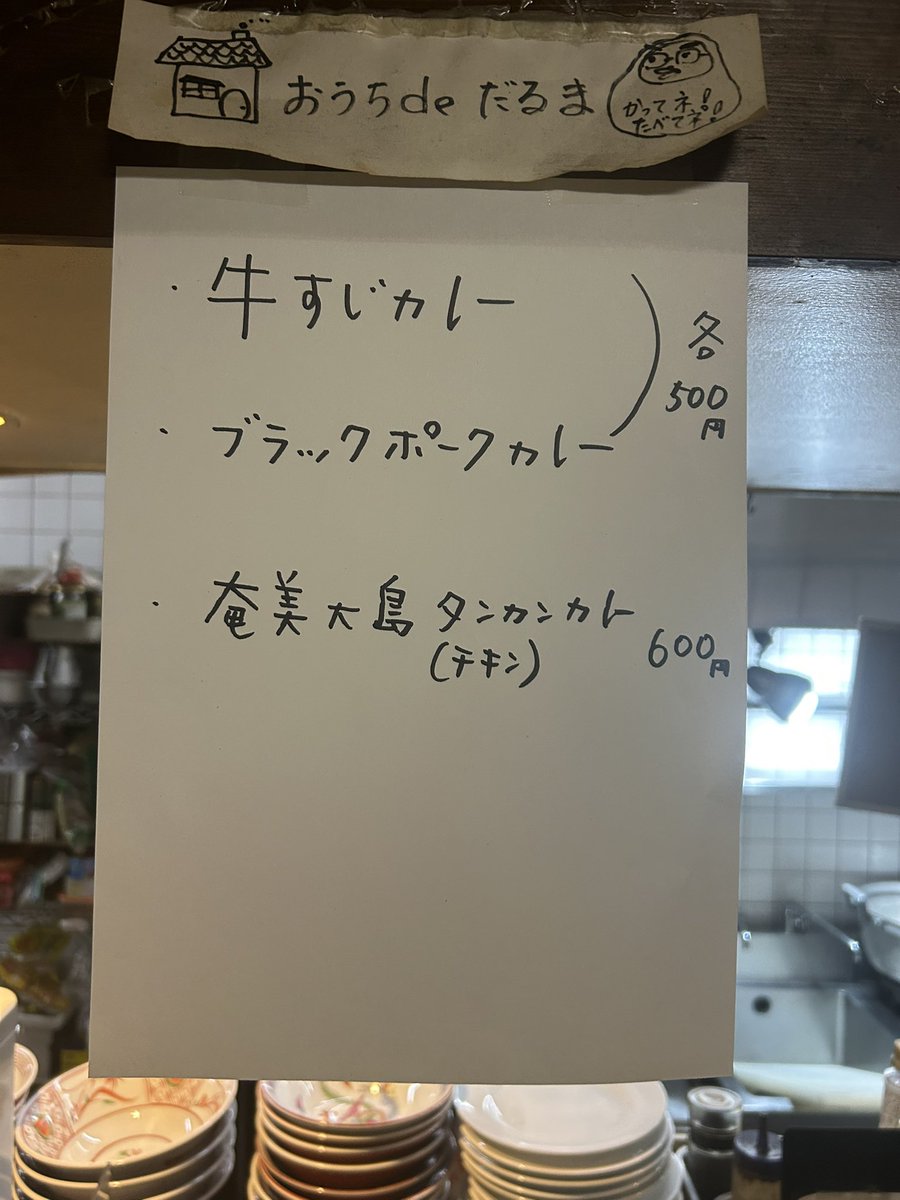 おうちde だるま
かってネ!
たべてネ!!
・牛すじカレー
・ブラックポークカレー
各
500
円
・奄美大島 タンカンカレー
(チキン)
600円